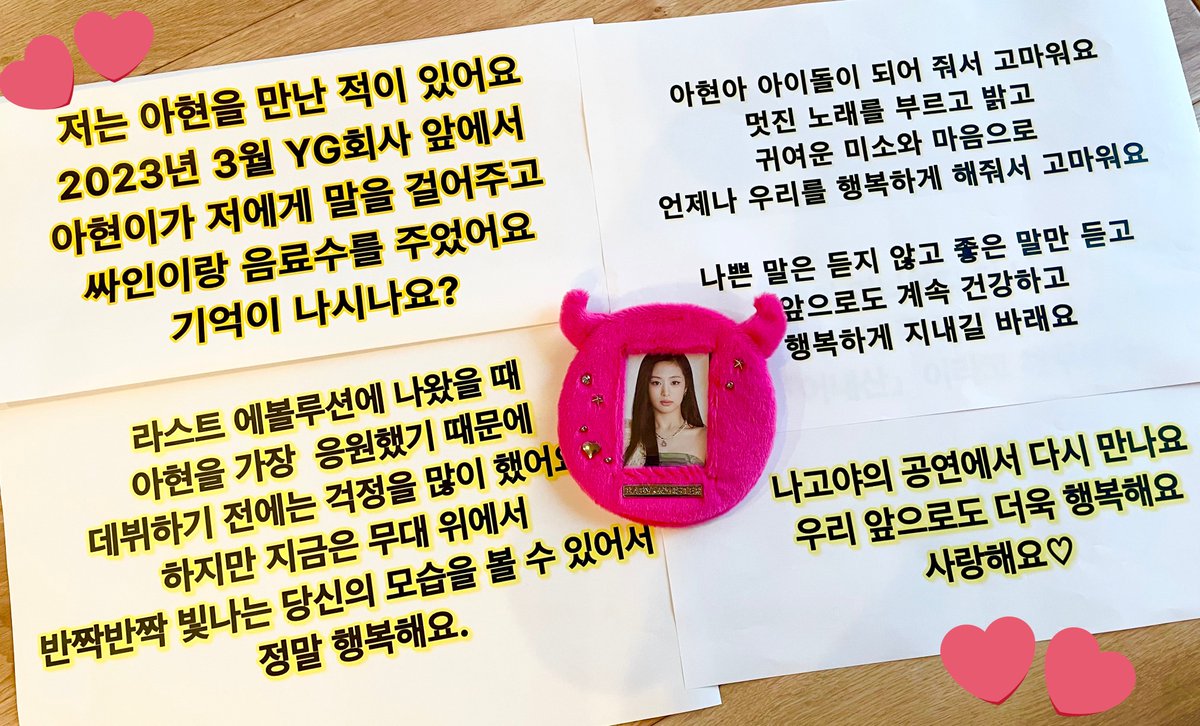 저는 아현을 만난 적이 있어요
2023년 3월 YG회사 앞에서
아현이가 저에게 말을 걸어주고
싸인이랑 음료수를 주었어요
기억이 나시나요?
아현아 아이돌이 되어 줘서 고마워요
멋진 노래를 부르고 밝고
귀여운 미소와 마음으로
언제나 우리를 행복하게 해줘서 고마워요
나쁜 말은 듣지 않고 좋은 말만 듣고
앞으로도 계속 건강하고
행복하게 지내길 바래요
라스트 에볼루션에 나왔을 때
아현을 가장 응원했기 때문에
데뷔하기 전에는 걱정을 많이 했어요
하지만 지금은 무대 위에서
반짝반짝 빛나는 당신의 모습을 볼 수 있어서
정말 행복해요.
나고야의 공연에서 다시 만나요
우리 앞으로도 더욱 행복해요
사랑해요♡